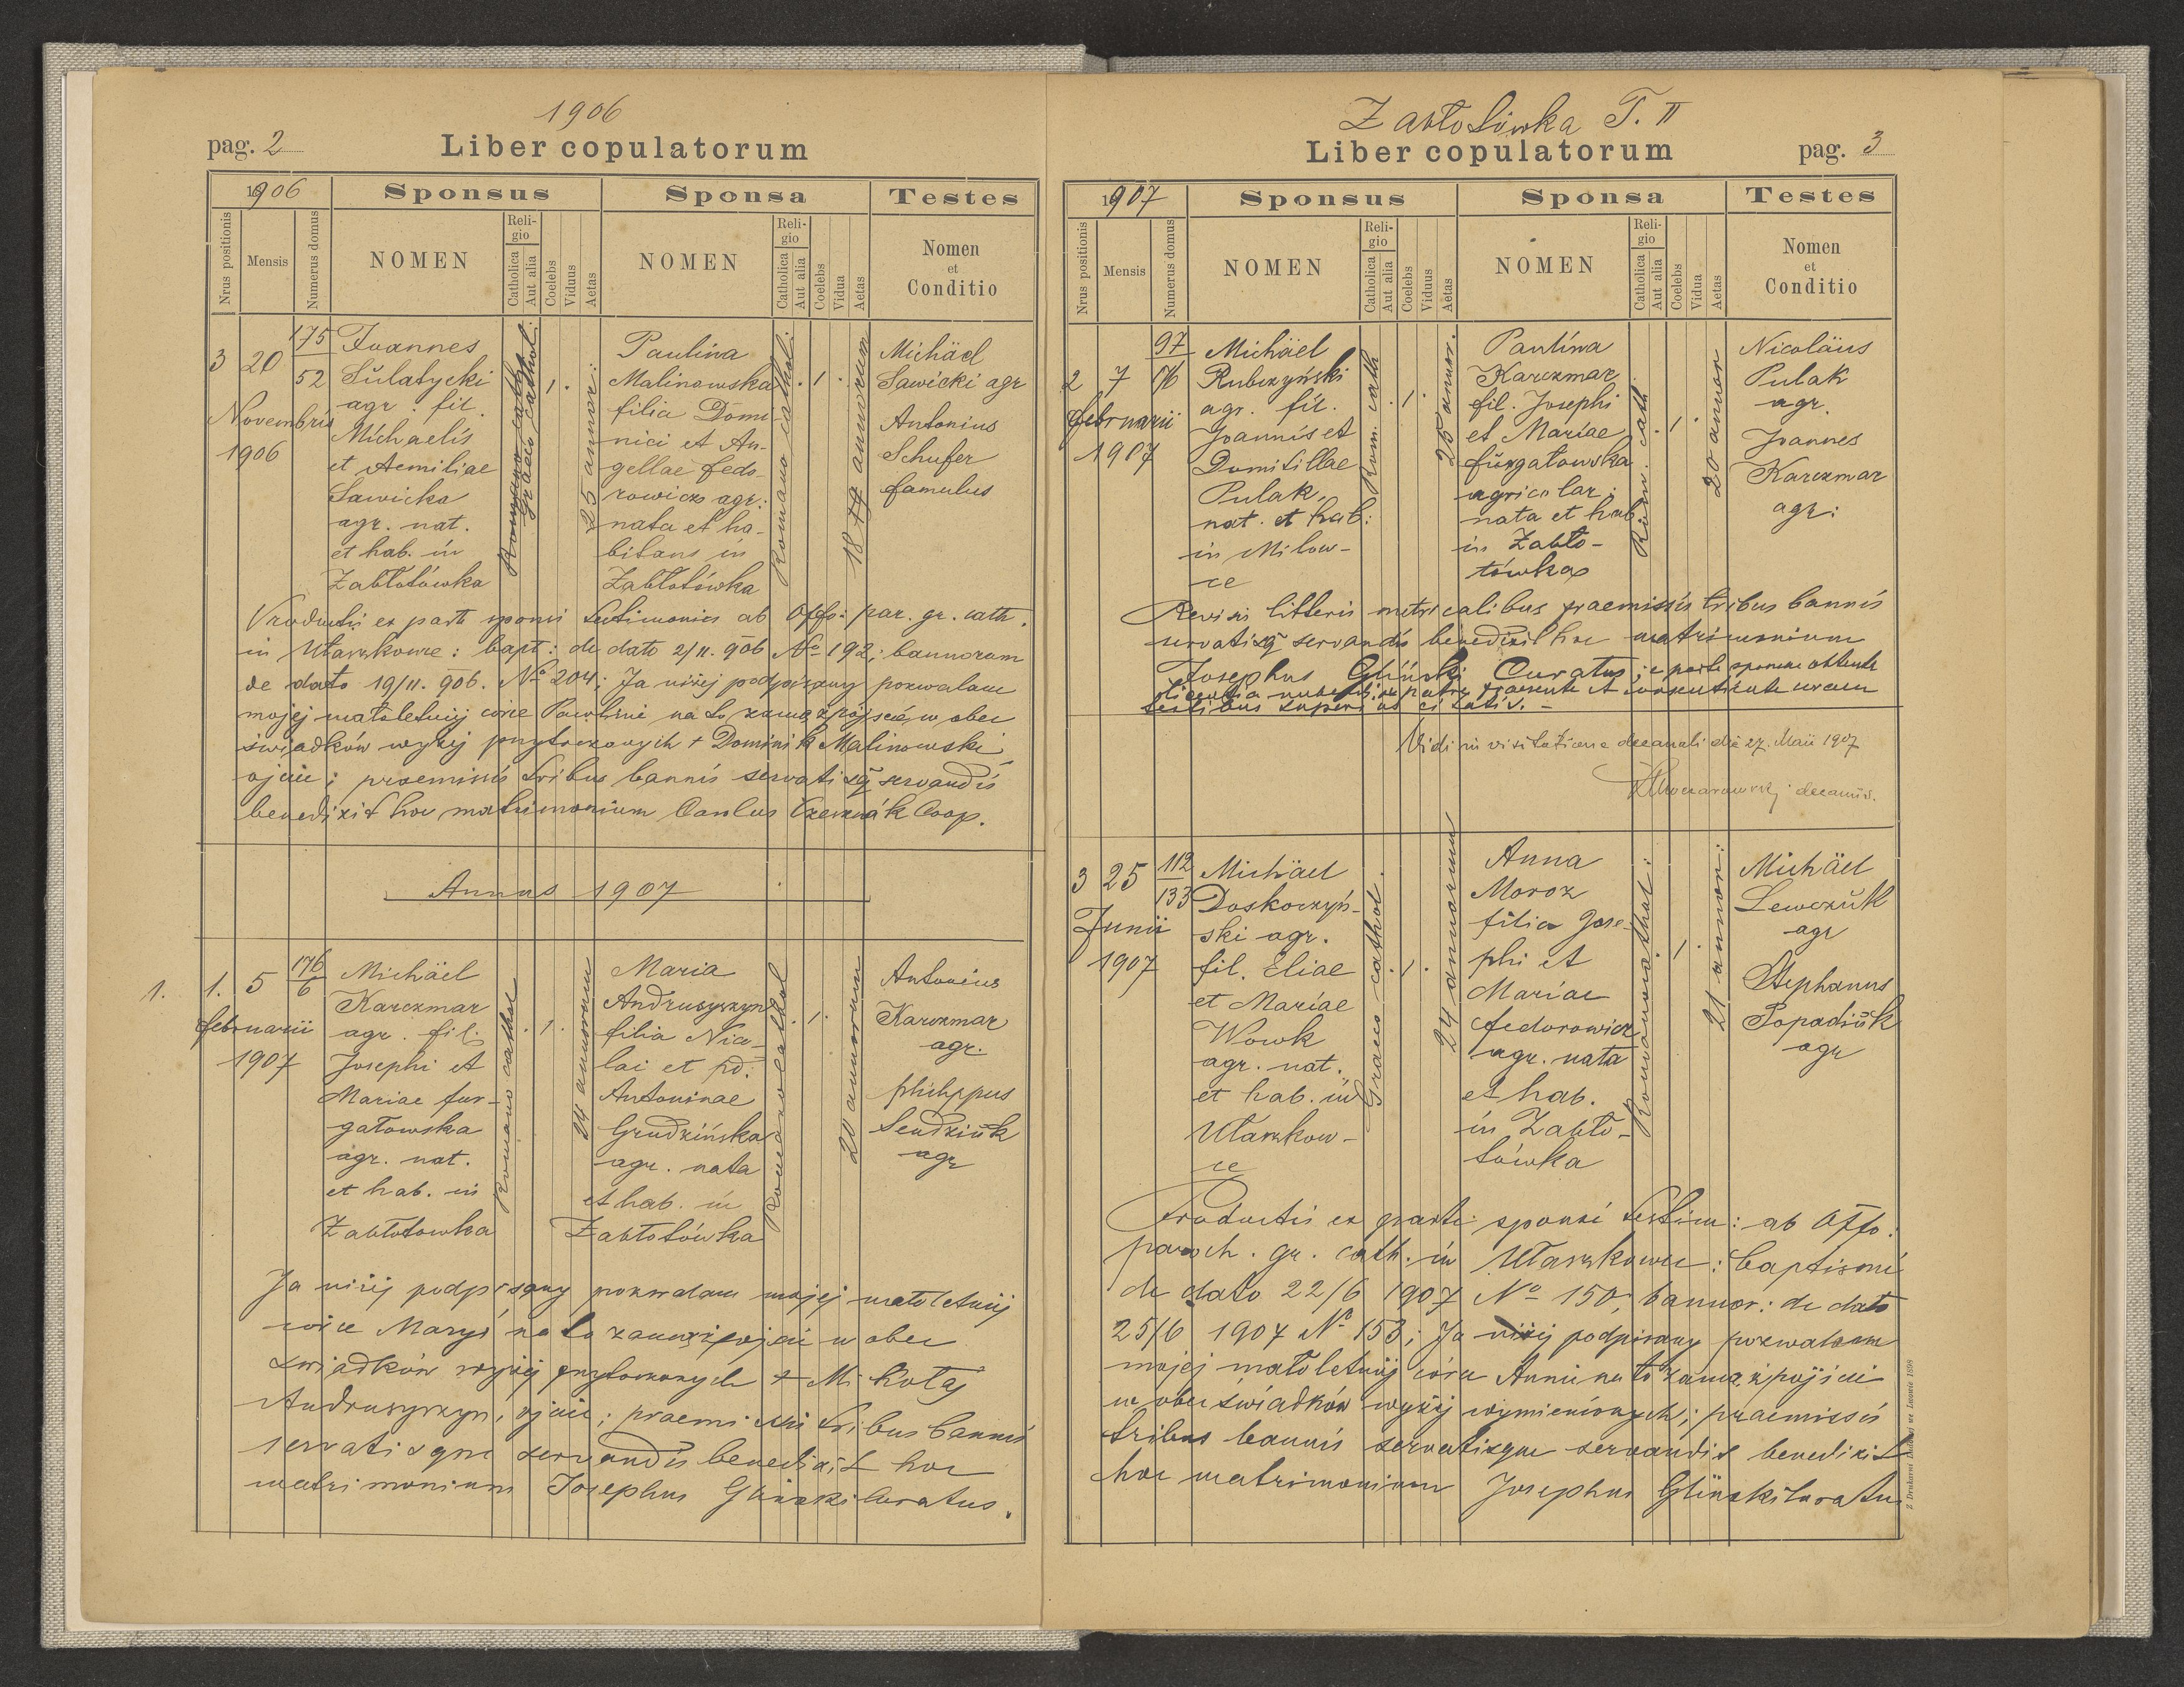 1906
pag. 2
Liber copulatorum
1906
Sponsus
Sponsa
Testes
Nrus positionis
Mensis
Numerus domus
NOMEN
Reli-
gio
Catholica
Aut alia
Coelebs
Viduus
Aetas
NOMEN
Reli-
gio
Catholica
Aut alia
Coelebs
Vidua
Aetas
Nomen
et
Conditio
3 20
175
52
Novembris
1906
Joannes
Sulatycki
agr. fil.
Michaelis
et Aemiliae
Sawicka
agr. nat.
et hab. in
Zabłotówka
Romano cathol.
Graeco cathol:
1.
25 annor:
Paulina
Malinowska
filia Domi
nici et An-
gellae Fedo-
rowicz agr:
nata et ha-
bitans in
Zabłotówka
Romano cathol:
1
18 annorum
Michäel
Sawicki agr
Antonius
Schufer
famulus
Productis ex parte sponsi testimoniis ab Offo: par. gr. cath.
in Ułaszkowce: bapt: de dato 2/11. 906 No 192; bannorum
de dato 19/11. 906. No 204; Ja niżej podpisany pozwalam
mojej małoletniej córce Paulinie na to zamążpójście w obec
świadków wyżej przytoczonych + Dominik Malinowski
ojciec; praemissis tribus bannis servatisq servandis
benedixit hoc matrimonium Carolus Coop.
Annus 1907
1.
1. 5
176
6
Februarii
1907
Michäel
Karczmar
agr. fil.
Josephi et
Mariae Fur-
gałowska
agr. nat.
et hab. in
Zabłotowka
Romano cathol
1.
24 annorum
Maria
Andruszyszyn
filia Nico-
lai et
Antoninae
Grudzińska
agr. nata
et hab. in
Zabłotówka
Romano cathol
1.
20 annorum
Antonius
Karczmar
agr.
Philippus
Sendziuk
agr
Ja niżej podpisany pozwalam mojej małoletniej
córce Maryi na to zamążpójście w obec
świadków wyżej przytoczonych + Mikołaj
Andruszyszyn, ojciec; praemissis tribus bannis
servatisque servandis benedixit hoc
matrimonium Josephus Gliński Curatus.
Zabłotówka T. II
Liber copulatorum
pag. 3
1907
Sponsus
Sponsa
Testes
Nrus positionis
Mensis
Numerus domus
NOMEN
Reli-
gio
Catholica
Aut alia
Coelebs
Viduus
Aëtas
NOMEN
Reli-
gio
Catholica
Aut alia
Coelebs
Vidua
Aetas
Nomen
et
Conditio
2 7
97
Februarii
1907
Michäel
Rubczyński
agr. fil.
Joannis et
Domitillae
Pulak,
nat. et hab:
in Milow-
ce
Rom. cath
1.
25 annor.
Paulina
Karczmar
fil. Josephi
et Mariae
Furgałowska
agricolar:
nata et hab
in Zabło-
tówka
Rom. cath
1.
20 annor
Nicoläus
Pulak
agr.
Joannes
Karczmar
agr:
Revisis litteris metricalibus praemissis tribus bannis
servatisq servandis benedixit hoc matrimonium
Josephus Gliński Curatus; e parte sponsae obtenta
licentia patre praesente et consentiente coram
testibus superius citatis.
Vidi in visitatione decanali die 27. Maii 1907
decanus.
3 25
112
133
Junii
1907
Michäel
Doskoczyń-
ski agr.
fil. Eliae
et Mariae
Wowk
agr. nat.
et hab. in
Ułaszkow-
ce
Graeco cathol.
1.
24 annorum
Anna
Moroz
filia Jose-
phi et
Mariae
Fedorowicz
agr. nata
et hab.
in Zabło-
tówka
Romano cathol:
1.
21 annor:
Michäel
Lewczŭk
agr
Stephanus
Popadiŭk
agr
Productis ex parte sponsi testim: ab Offo:
paroch. gr. cath. in Ułaszkowce: baptismi
de dato 22/6 1907 No 150; bannor: de dato
25/6 1907 No 153; Ja niżej podpisany pozwalam
mojej małoletniej córce Annie na to zamążpójście
w obec świadków wyżej wymienionych; praemissis
tribus bannis servatisque servandis benedixit
hoc matrimonium Josephus Gliński Curatus
Z Drukarni Ludowej we Lwowie 1898